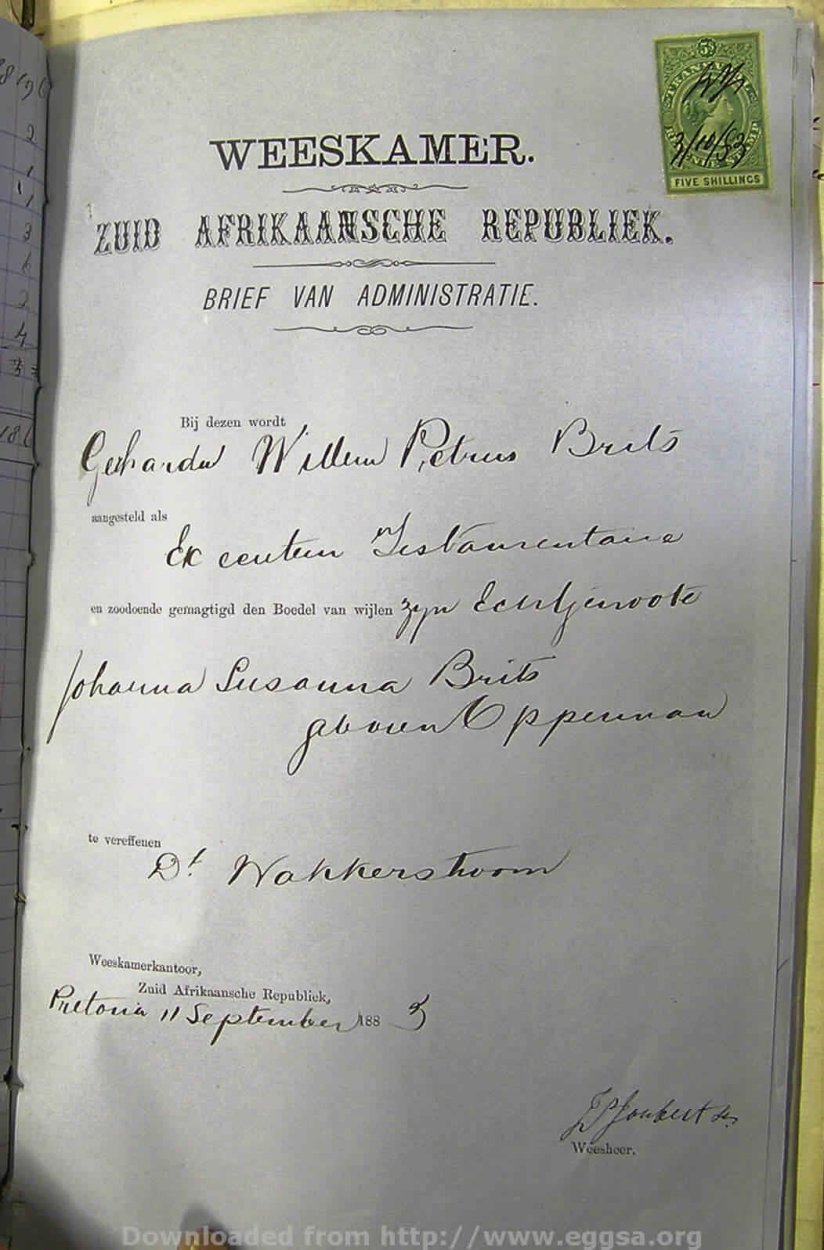 5/-
TRANSVAAL
3/10/83
FIVE SHILLINGS
WEESKAMER.
ZUID AFRIKAANSCHE REPUBLIEK.
BRIEF VAN ADMINISTRATIE.
Bij dezen wordt
Gerhardus Willem Petrus Brits
aangesteld als
Executeur Testamentaire
en zoodoende gemagtigd den Boedel van wijlen zyn Echtgenoote
Johanna Susanna Brits
geboren Opperman
te vereffenen
Dt Wakkerstroom
Weeskamerkantoor,
Zuid Afrikaansche Republiek,
Pretoria 11 September 1883
Joubert
Weesheer.
Downloaded from http://www.eggsa.org